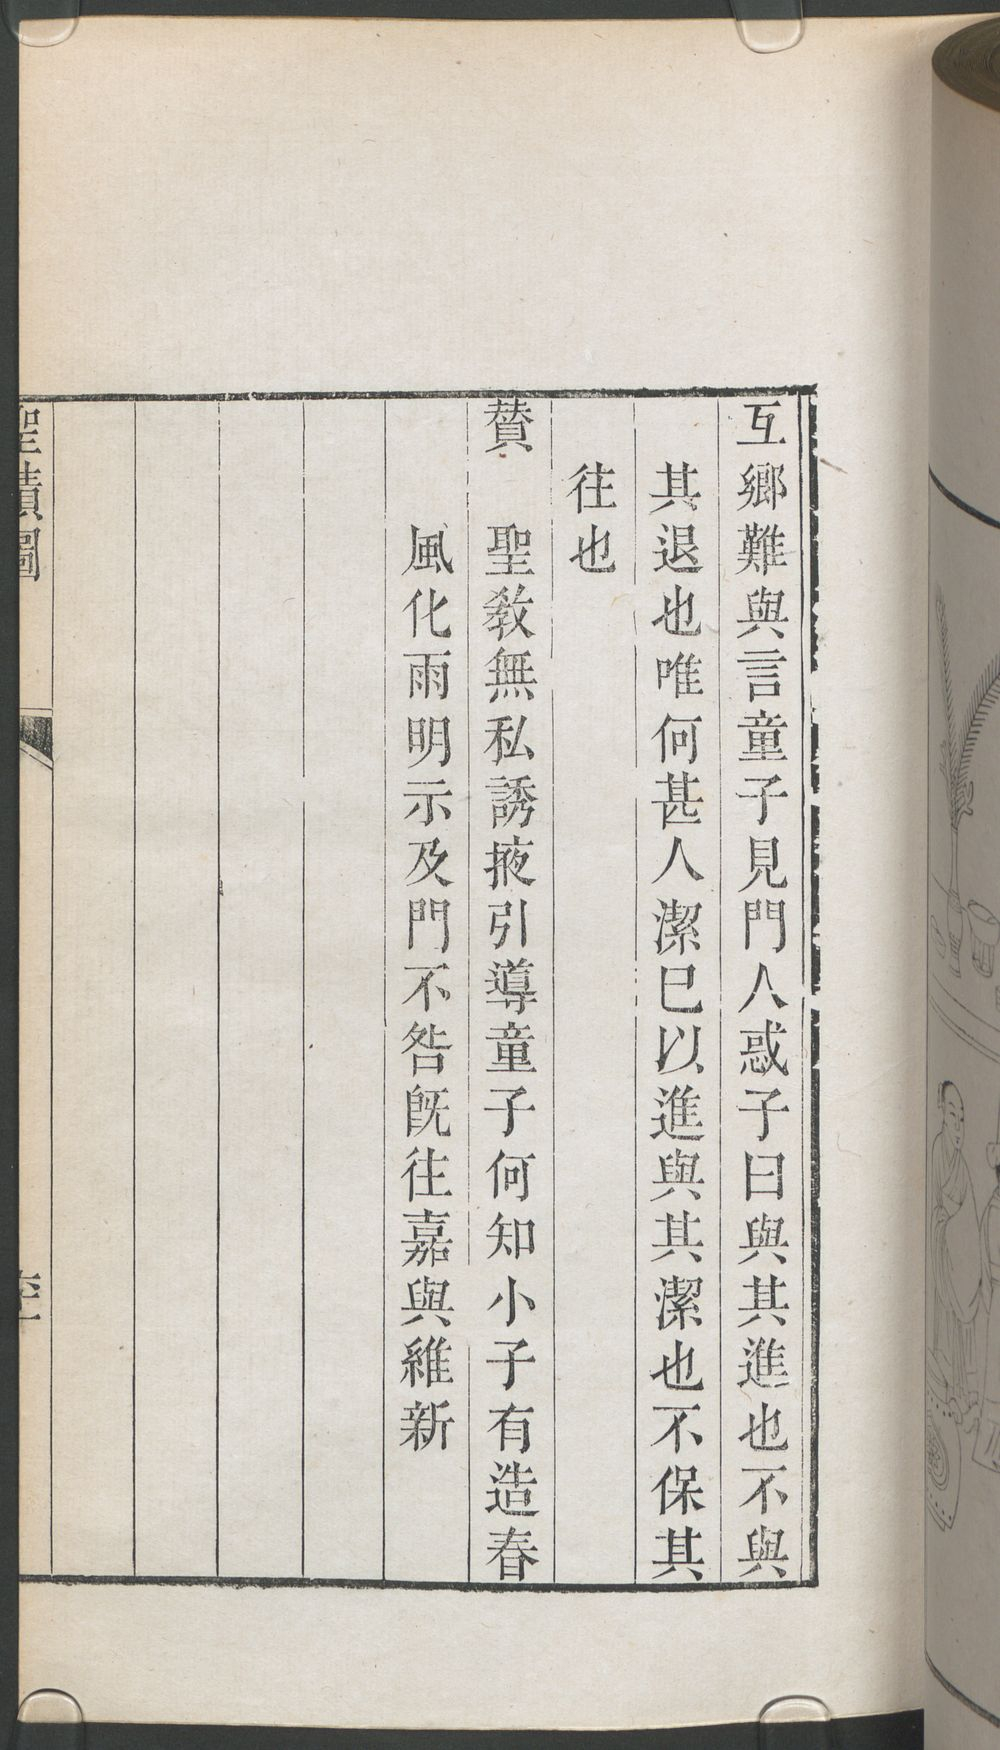 互鄉難與言童子見門人惑子曰與其進也不與
其退也唯何甚人潔已以進與其潔也不保其
往也
賛 聖敎無私誘掖引導童子何知小子有造春
風化雨明示及門不咎旣往嘉與維新
聖蹟圖